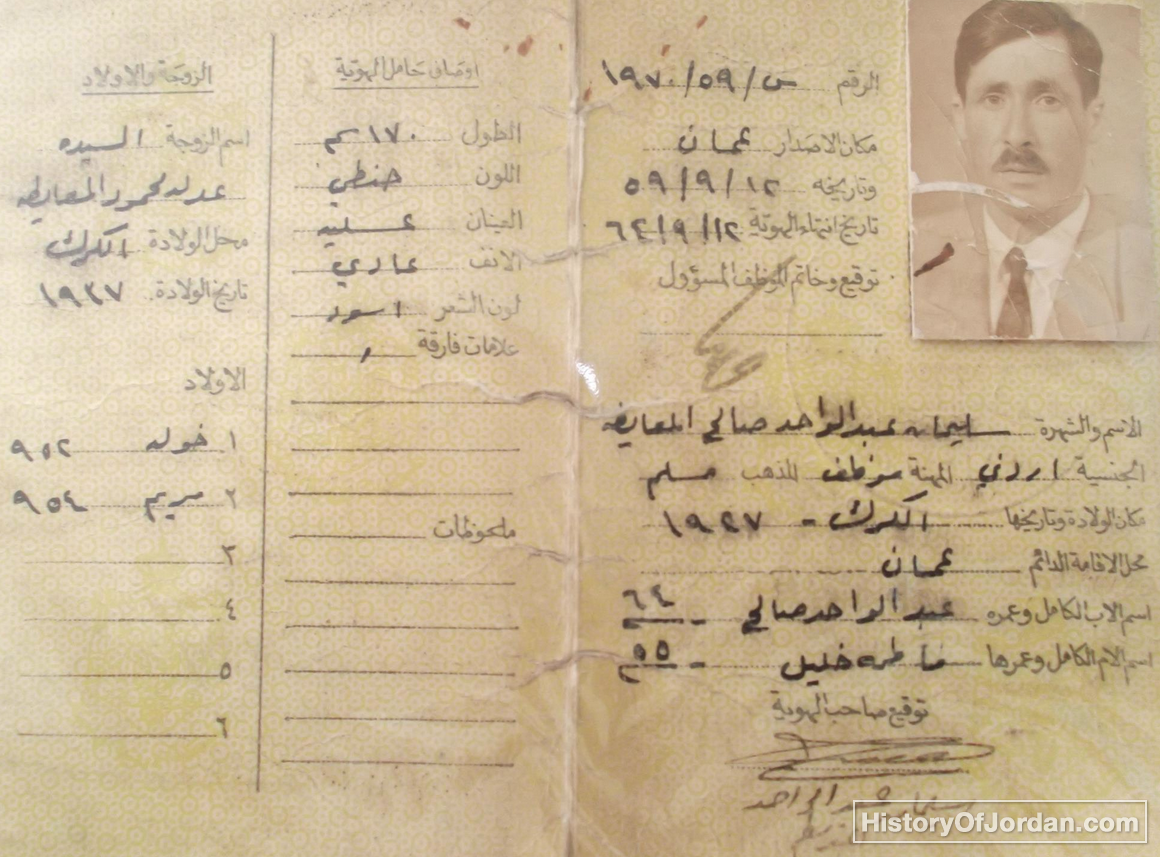 الرقم س/٥٩/١٩٧٠
مكان الاصدار عمان
وتاريخه ٥٩/٩/١٢
تاريخ انتهاء الهوية ٦٤/٩/١٢
توقيع وخاتم الموظف المسؤول
الاسم والشهرة سليمان عبدالواحد صالح المعايطه
الجنسية اردني المهنة موظف المذهب مسلم
مكان الولادة وتاريخها الكرك - ١٩٢٧
محل الاقامة الدائم عمان
اسم الاب الكامل وعمره عبدالواحد صالح - ٦٤
اسم الام الكامل وعمرها فاطمه خليل - ٥٥
توقيع صاحب الهوية
سليمان عبد الواحد
اوصاف حامل الهوية
الطول ١٧٠ سم
اللون حنطي
العينان عسليه
الانف عادي
لون الشعر اسود
علامات فارقة
ملحوظات
الزوجة والاولاد
اسم الزوجة السيده
عدله محمود المعايطه
محل الولادة الكرك
تاريخ الولادة. ١٩٢٧
الاولاد
١ خوله ٩٥٢
٢ مريم ٩٥٤
٣
٤
٥
٦
HistoryOfJordan.com